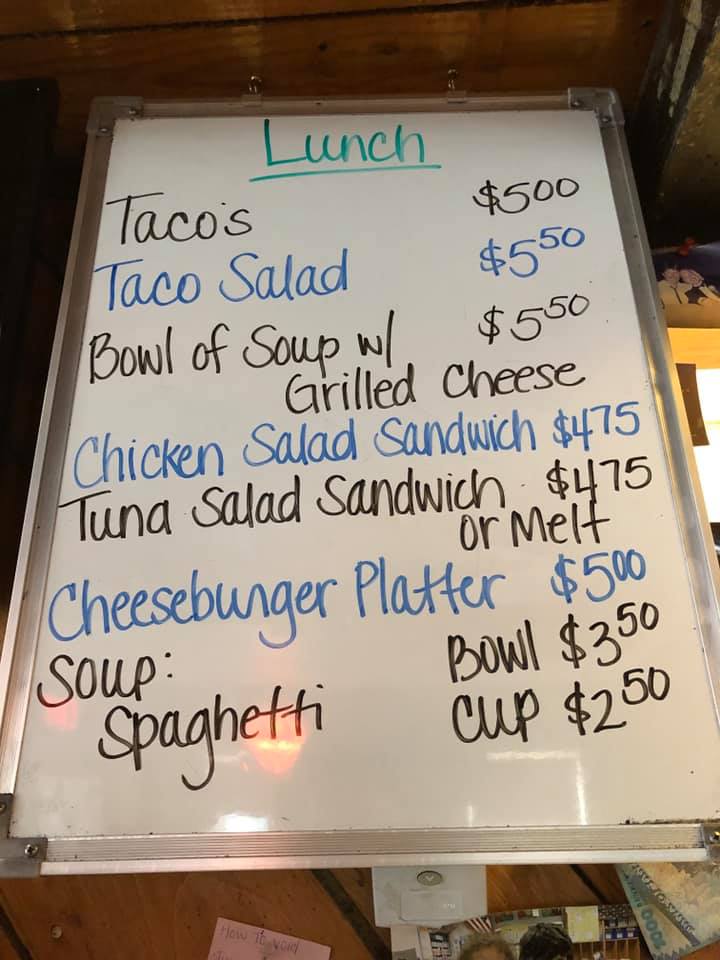 Lunch
Taco's $500
Taco Salad $5 50
Bowl of Soup w/ $5 50
Grilled Cheese
Chicken Salad Sandwich $475
Tuna Salad Sandwich $475
or Melt
Cheeseburger Platter $500
Soup: Bowl $3 50
Spaghetti Cup $2 50
How To Void
000